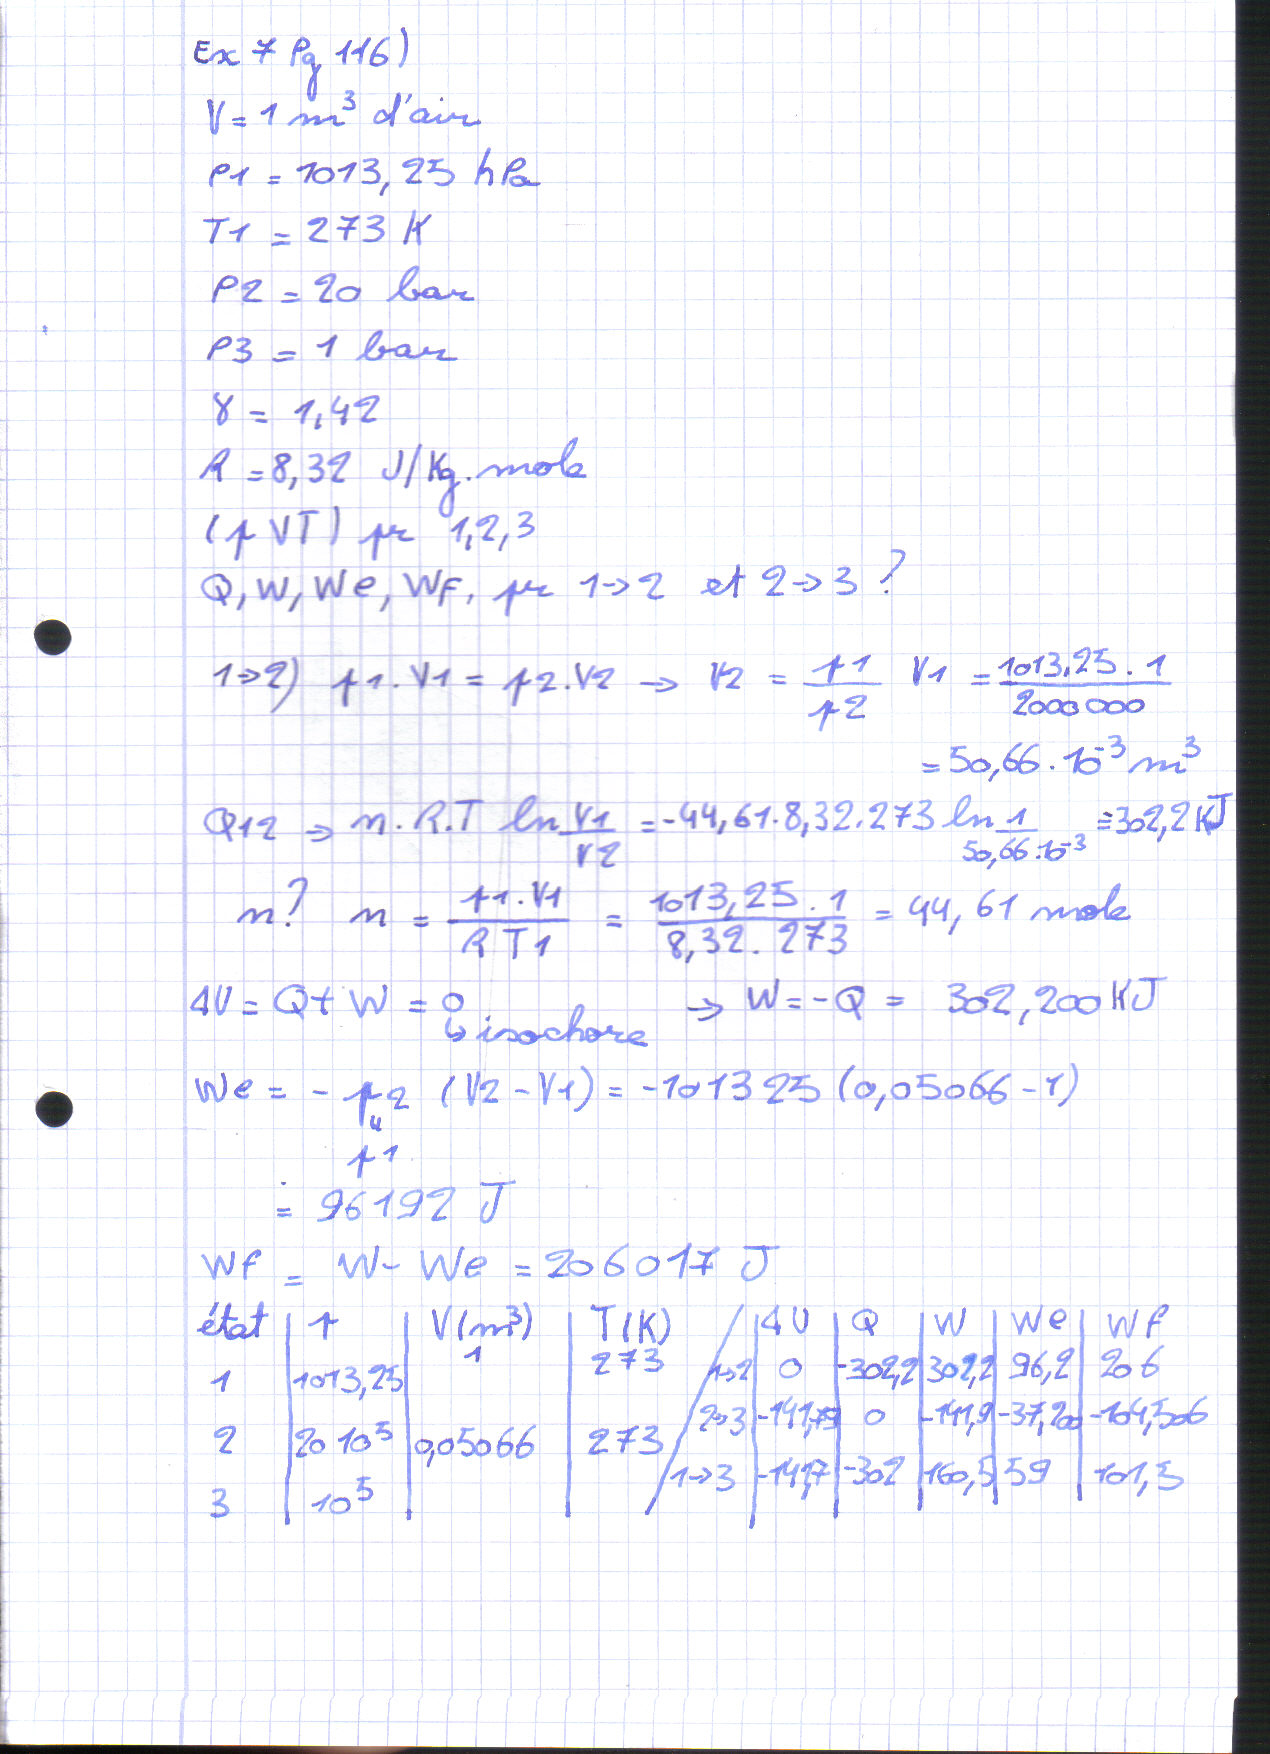 Ex 7 Pg 116)
V = 1 m³ d'air
P1 = 1013,25 hPa
T1 = 273 K
P2 = 20 bar
P3 = 1 bar
γ = 1,42
R = 8,32 J/Kg.mole
(p VT) pr 1,2,3
Q, W, We, Wf, pr 1->2 et 2->3 ?
1->2) p1.V1 = p2.V2 -> V2 = p1/p2 V1 = 1013,25 . 1/2000 000
= 50,66 . 10⁻³ m³
Q12 => n.R.T ln V1/V2 = -44,61.8,32.273 ln 1/50,66.10⁻³ = -302,2 KJ
n? n = p1.V1/R T1 = 1013,25 . 1/8,32. 273 = 44,61 mole
ΔU = Q + W = 0 -> W = -Q = 302,200 KJ
↳ isochore
We = - p2 (V2 - V1) = -101325 (0,05066 - 1)
"
p1
= 96192 J
Wf = W - We = 206017 J
état | p | V(m³) | T(K) / ΔU | Q | W | We | Wf
1 | 1013,25 | 1 | 273 / 1->2 | 0 | -302,2 | 302,2 | 96,2 | 206
2 | 20 10⁵ | 0,05066 | 273 / 2->3 | -141,79 | 0 | -141,9 | -37,200 | -104,506
3 | 10⁵ | | / 1->3 | -141,7 | -302 | 160,5 | 59 | 101,5